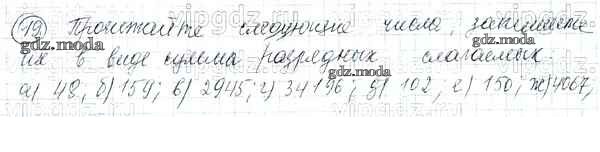 19) Прочитайте следующие числа, запишите
их в виде суммы разрядных слагаемых.
а) 48; б) 159; в) 2945; г) 34196; д) 102; е) 150; ж) 4067;
gdz.moda
gdz.moda
gdz.moda
gdz.moda